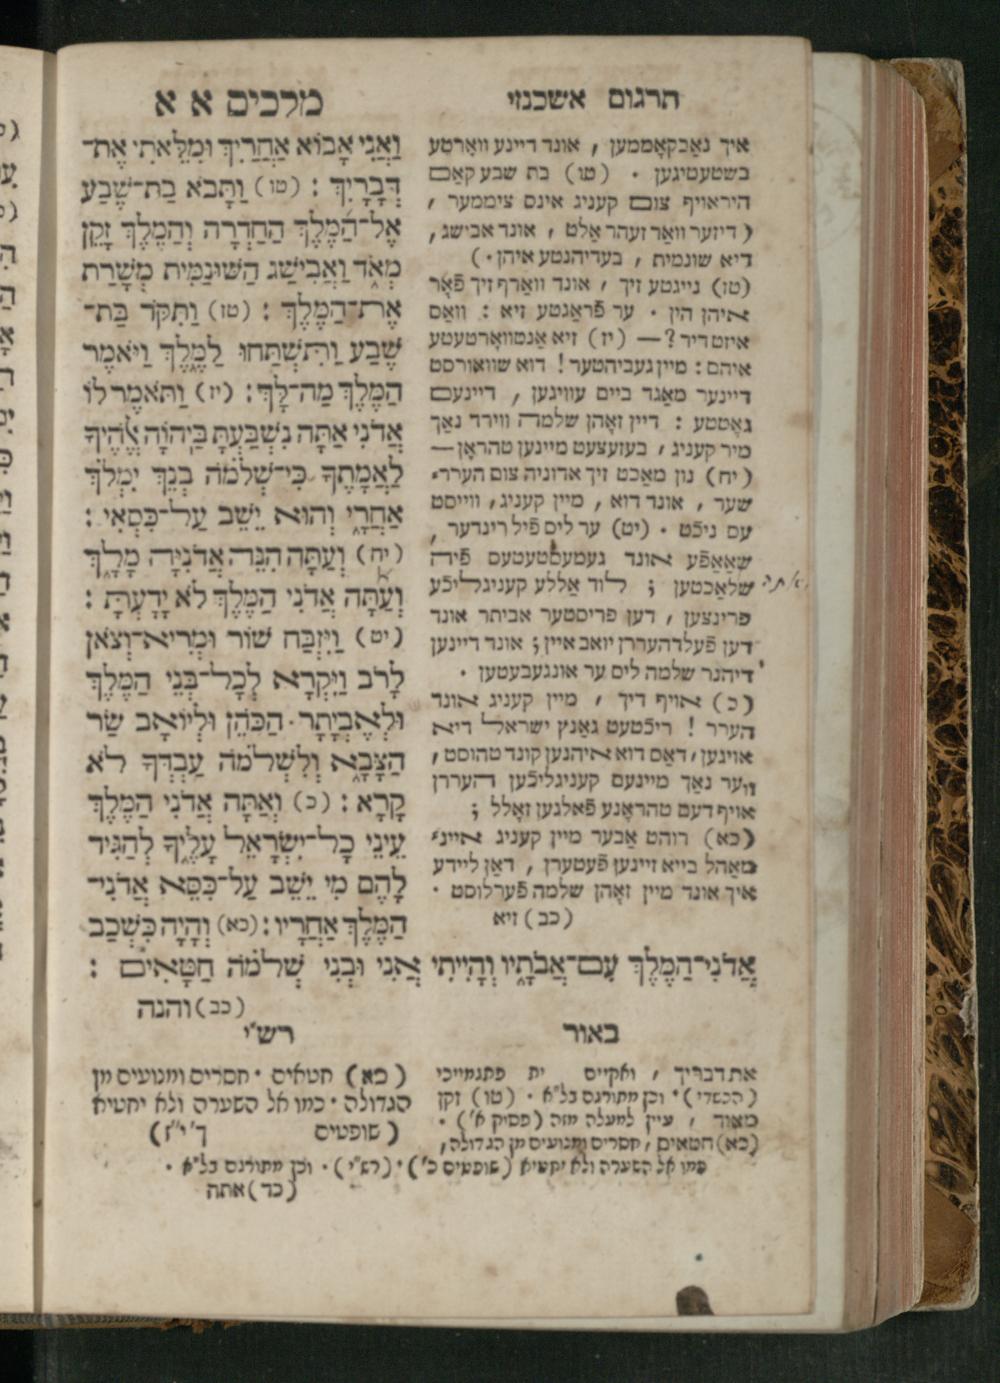 תרגום אשכנזי
מלכים א א
וַאֲנִי אָבוֹא אַחֲרַיִךְ וּמִלֵּאתִי אֶת־
דְּבָרָיִךְ : (טו) וַתָּבֹא בַת־שֶׁבַע
אֶל־הַמֶּלֶךְ הַחַדְרָה וְהַמֶּלֶךְ זָקֵן
מְאֹד וַאֲבִישַׁג הַשּׁוּנַמִּית מְשָׁרַת
אֶת־הַמֶּלֶךְ : (טז) וַתִּקֹּד בַּת־
שֶׁבַע וַתִּשְׁתַּחוּ לַמֶּלֶךְ וַיֹּאמֶר
הַמֶּלֶךְ מַה־לָּךְ : (יז) וַתֹּאמֶר לוֹ
אֲדֹנִי אַתָּה נִשְׁבַּעְתָּ בַּיהוָֹה אֱלֹהֶיךָ
לַאֲמָתֶךָ כִּי־שְׁלֹמֹה בְנֵךְ יִמְלֹךְ
אַחֲרָי וְהוּא יֵשֵׁב עַל־כִּסְאִי :
(יח) וְעַתָּה הִנֵּה אֲדֹנִיָּה מָלָךְ
וְעַתָּה אֲדֹנִי הַמֶּלֶךְ לֹא יָדָעְתָּ :
(יט) וַיִּזְבַּח שׁוֹר וּמְרִיא־וְצֹאן
לָרֹב וַיִּקְרָא לְכָל־בְּנֵי הַמֶּלֶךְ
וּלְאֶבְיָתָר הַכֹּהֵן וּלְיוֹאָב שַׂר
הַצָּבָא וְלִשְׁלֹמֹה עַבְדְּךָ לֹא
קָרָא : (כ) וְאַתָּה אֲדֹנִי הַמֶּלֶךְ
עֵינֵי כָל־יִשְׂרָאֵל עָלֶיךָ לְהַגִּיד
לָהֶם מִי יֵשֵׁב עַל־כִּסֵּא אֲדֹנִי־
הַמֶּלֶךְ אַחֲרָיו : (כא) וְהָיָה כִּשְׁכַב
איך נאַכקאָממען , אונד דיינע וואָרטע
בשטעטיגען . (טו) בת שבע קאַם
היראויף צום קעניג אינס ציממער ,
(דיזער וואר זעהר אַלט , אונד אבישג ,
דיא שונמית , בעדיהנטע איהן .)
(טז) נייגטע זיך , אונד וואַרף זיך פֿאָר
איהן הין . ער פֿראַגטע זיא : וואָס
איזט דיר ? — (יז) זיא אַנטוואָרטעטע
איהם : מיין געביהטער ! דוא שוואורסט
דיינער מאַגד ביים עוויגען , דיינעם
גאָטטע : דיין זאָהן שלמה ווירד נאַך
מיר קעניג , בעזעצעט מיינען טהראָן —
(יח) נון מאַכט זיך אדוניה צום הערר־
שער , אונד דוא , מיין קעניג , ווייסט
עס ניכֿט . (יט) ער ליס פֿיל רינדער ,
שאַאַפֿע אונד געמעסטעטעס פֿיה
שלאַכטען ; לוד אַללע קעניגליכֿע
פרינצען , דען פריסטער אביתר אונד
דען פֿעלדהעררן יואב איין ; אונד דיינען
דיהנר שלמה ליס ער אונגעבעטען .
(כ) אויף דיך , מיין קעניג אונד
הערר ! ריכֿטעט גאַנץ ישראל דיא
אויגען , דאַס דוא איהנען קונד טהוסט ,
ווער נאַך מיינעם קעניגליכֿען העררן
אויף דעם טהראָנע פֿאלגען זאָלל ;
(כא) רוהט אַבער מיין קעניג איינ־
מאַהל בייא זיינען פֿעטערן , דאַן ליידע
איך אונד מיין זאָהן שלמה פֿערלוסט .
(כב) זיא
אֲדֹנִי־הַמֶּלֶךְ עִם־אֲבֹתָיו וְהָיִיתִי אֲנִי וּבְנִי שְׁלֹמֹה חַטָּאִים :
(כב) והנה
באור
את דבריך , ואקיים ית פתגמייכי
(הכשדי) . וכן מתורגם בל"א . (טו) זקן
מאוד , עיין למעלה מזה (פסוק א') .
(כא) חטאים , חסרים ומנועים מן הגדולה ,
כמו אל השערה ולא יחטיא (שופטים כ') . (רש"י) . וכן מתורגם בל"א .
(כד) אתה
רש"י
(כא) חטאים . חסרים ומנועים מן
הגדולה . כמו אל השערה ולא יחטיא
(שופטים ך' י"ז)